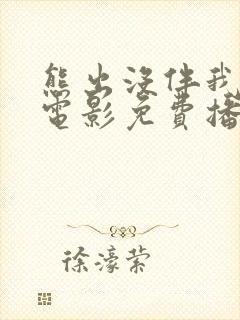 熊出没伴我
电影免费播
徐濠萦